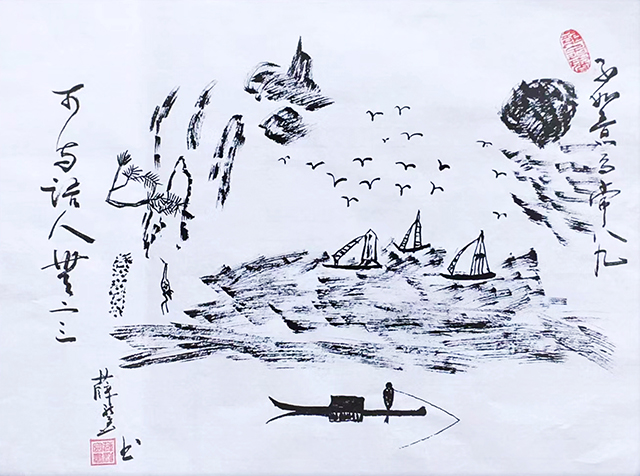 不如意事常八九
可与语人無二三
薛 书